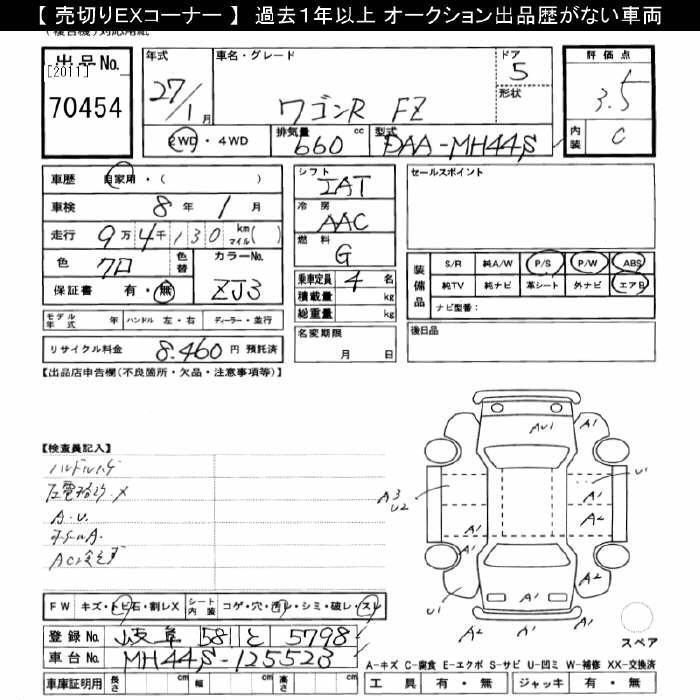 【 売切りEXコーナー 】 過去1年以上 オークション出品歴がない車両
出品No.
[2011]
70454
年式
27/1月
車名・グレード
ワゴンR FZ
ドア
5
形状
評価点
3.5
内装
C
2WD・4WD
排気量
660 cc
型式
DAA-MH44S
車歴 自家用・( )
車検 8年 1月
走行 9万4千130 km マイル( )
色 クロ 色替 カラーNo. ZJ3
保証書 有・無
モデル年式 年 ハンドル 左・右 ディーラー・並行
リサイクル料金 8,460円 預託済
シフト
IAT
冷房
AAC
燃料
G
乗車定員 4 名
積載量 kg
総重量 kg
名変期限
月 日
セールスポイント
装備品
S/R 純A/W P/S P/W ABS
純TV 純ナビ 革シート 外ナビ エアB
ナビ型番:
後日品
【出品店申告欄(不良箇所・欠品・注意事項等)】
【検査員記入】
A.U.
FW キズ・トビ石・割レX シート内装 コゲ・穴・汚レ・シミ・破レ・スレ
登録No. 岐阜 58 と 5798
車台No. MH44S-125523
車庫証明用 長さ cm 幅 cm 高さ cm
AU1
A1
A1
U1
A3
U2
A1
A1
A2
A1
A1
A2
U1
A1
A1
スペア
A-キズ C-腐食 E-エクボ S-サビ U-凹ミ W-補修 XX-交換済
工具 有・無 ジャッキ 有・無